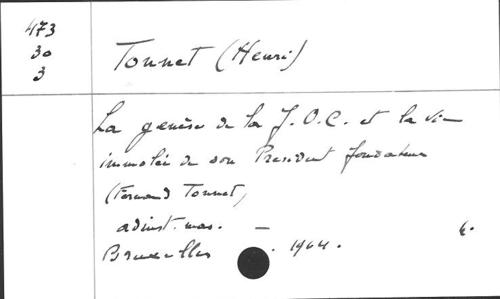 473
30
3
Tonnet (Henri)
La genèse de la J.O.C. et la vie
immolée de son President fondateur
(Fernand Tonnet)
Bruxelles . 1964.